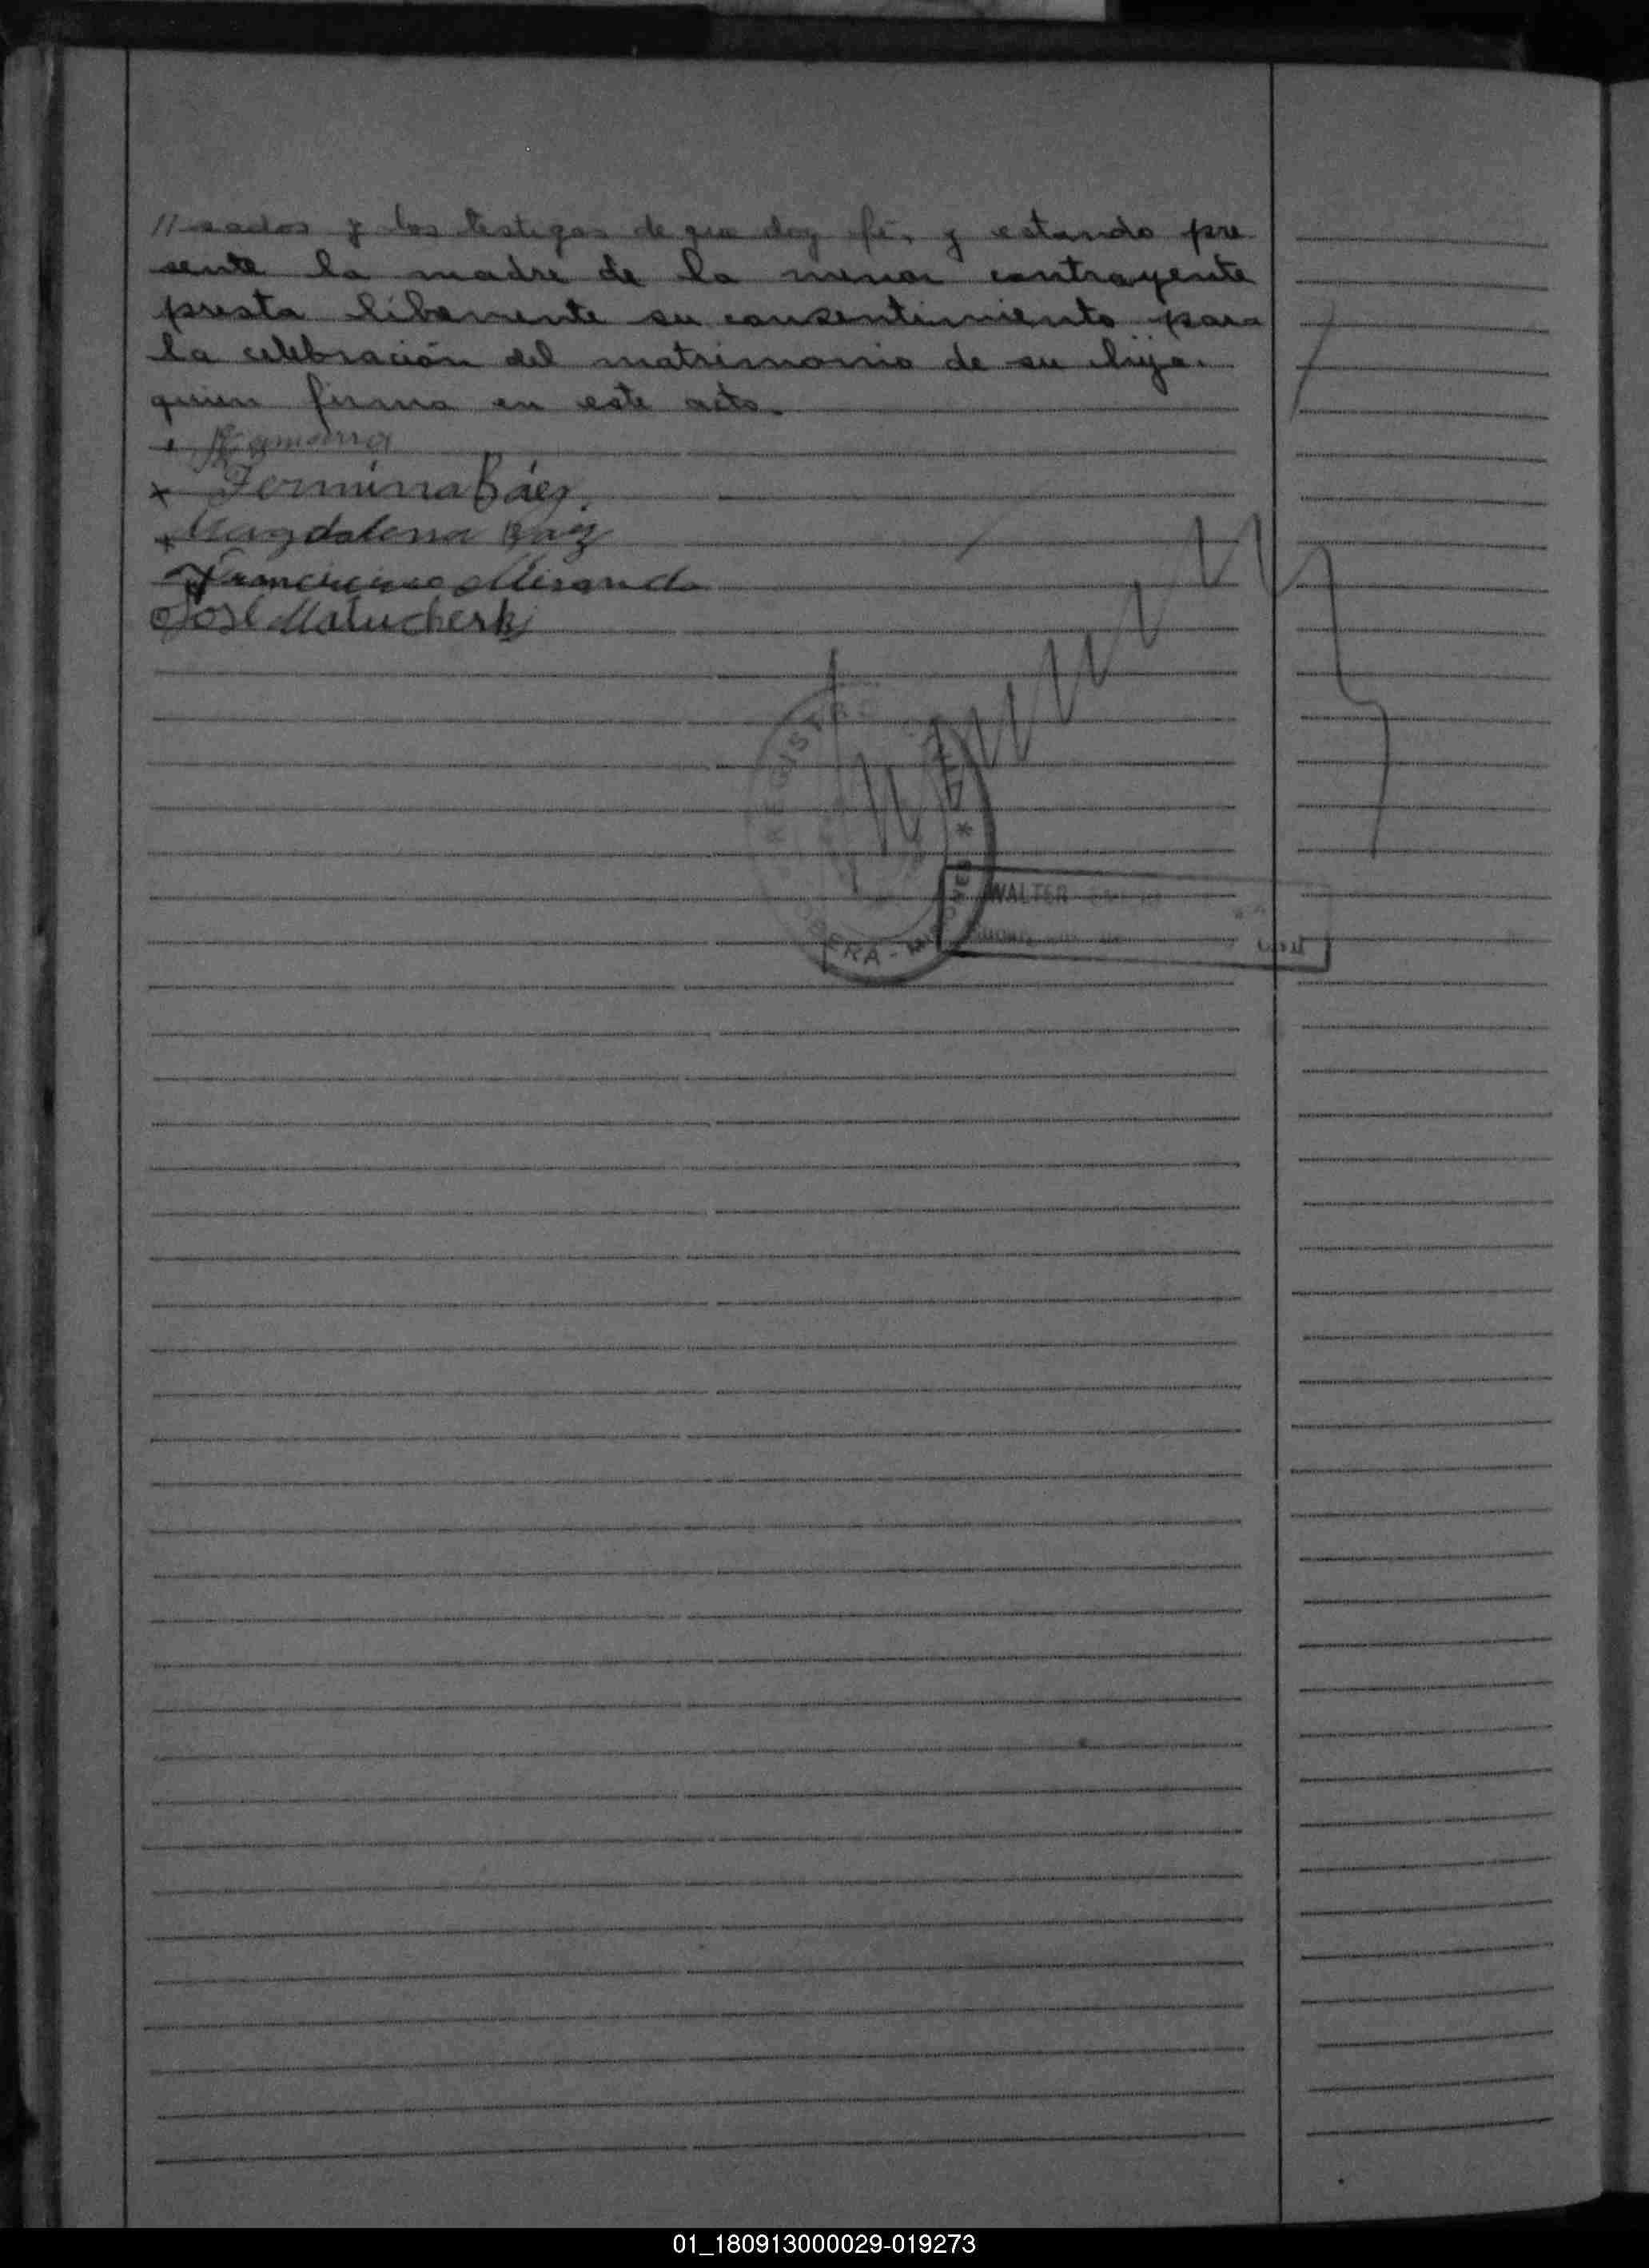 //sados y los testigos de que doy fé, y estando pre
sente la madre de la menor contrayente
presta libemente su consentimiento para
la celebración del matrimonio de su hija.
quien firma en este acto.
Gamarra
x Fermina Báez.
x Magdalena Baez
Francisco Miranda
José Matucheski
REGISTR
CIVIL *
OBERA - MISIONES
WALTER
01_180913000029-019273